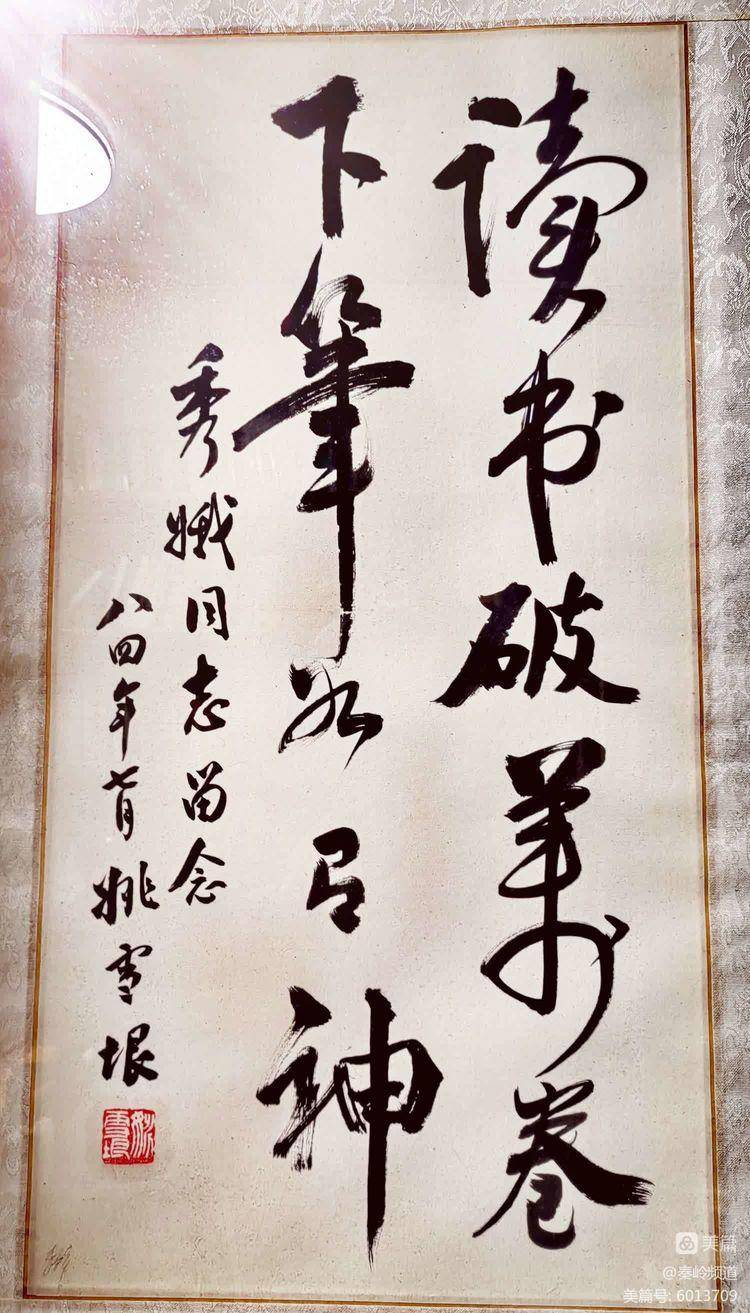 读书破萬卷
下筆如有神
秀娥同志留念
八四年七月 姚雪垠
姚雪垠
美篇
@秦岭频道
美篇号: 6013709